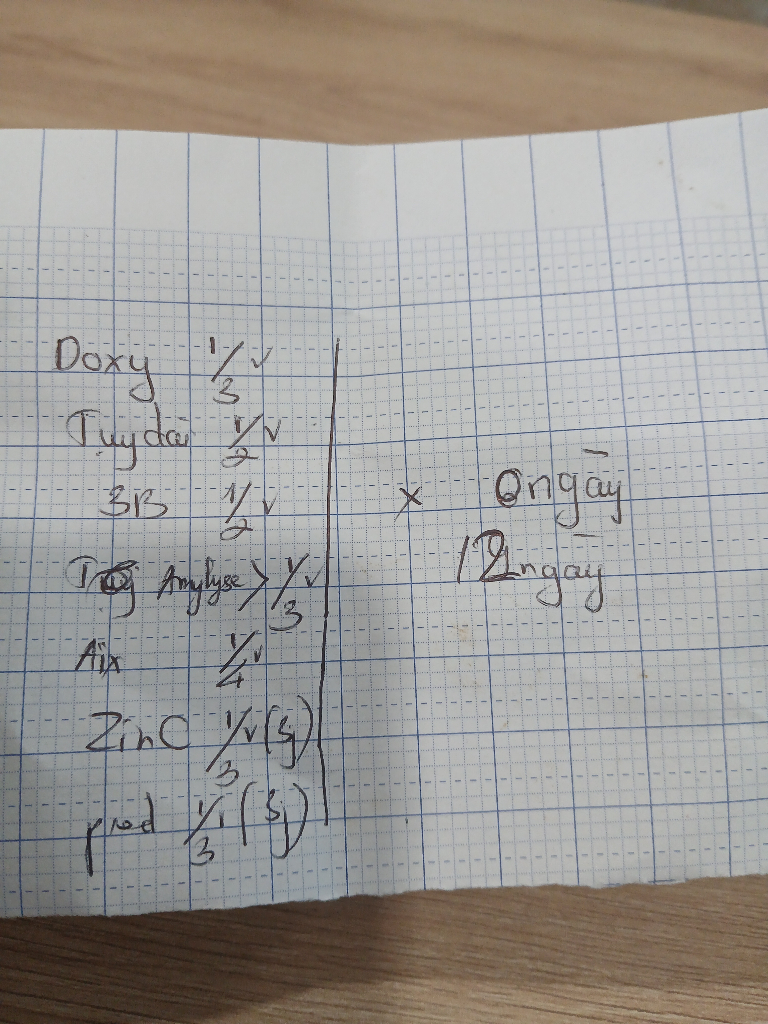 Doxy 1/3 v
Tuydai 1/2 v
3B 1/2 v
Amylyse > 1/3 v
Aix 1/4 v
ZinC 1/3 v (Sj)
pred 1/3 v (Sj)
x
ngày
12 ngày